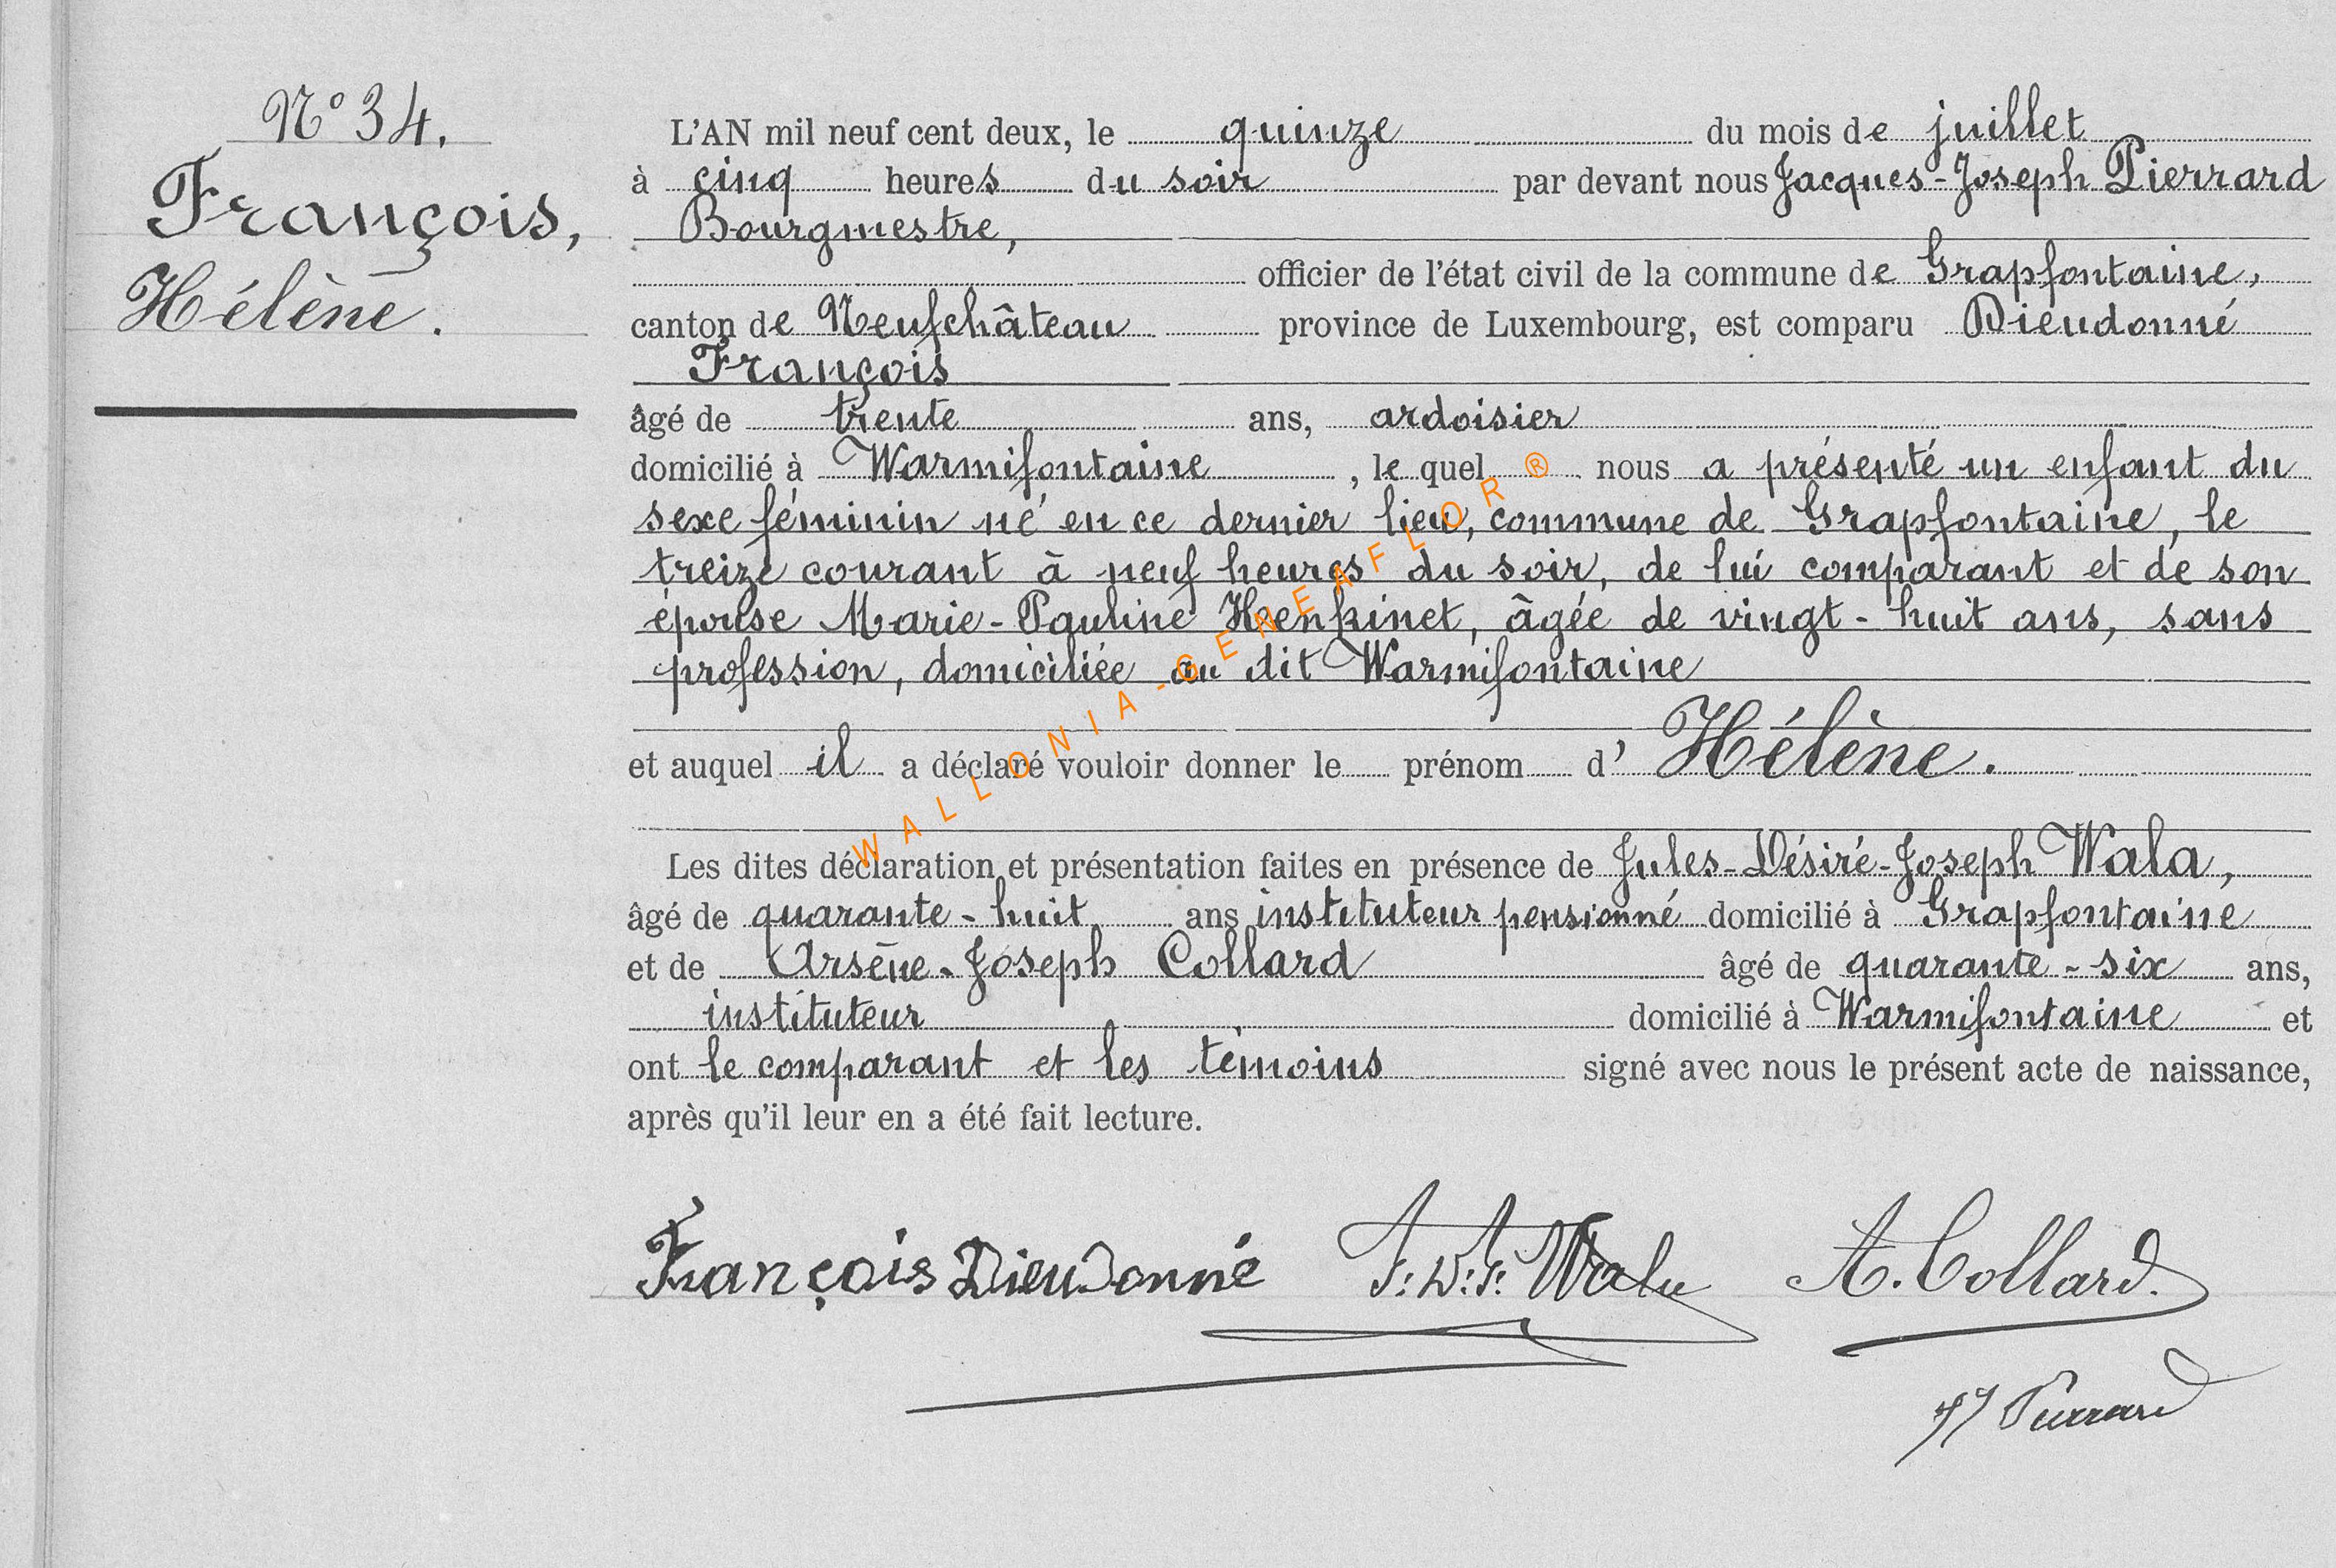 N° 34.
François,
Hélène.
L'AN mil neuf cent deux, le quinze du mois de juillet
à cinq heures du soir par devant nous Jacques-Joseph Pierrard
Bourgmestre,
officier de l'état civil de la commune de Grapfontaine,
canton de Neufchâteau province de Luxembourg, est comparu Dieudonné
François
âgé de trente ans, ardoisier
domicilié à Warmifontaine, le quel nous a présenté un enfant du
sexe féminin né en ce dernier lieu, commune de Grapfontaine, le
treize courant à neuf heures du soir, de lui comparant et de son
épouse Marie-Pauline Henkinet, âgée de vingt-huit ans, sans
profession, domiciliée au dit Warmifontaine
et auquel il a déclaré vouloir donner le prénom d' Hélène.
Les dites déclaration et présentation faites en présence de Jules-Désiré-Joseph Wala,
âgé de quarante-huit ans instituteur pensionné domicilié à Grapfontaine
et de Arsène-Joseph Collard âgé de quarante-six ans,
instituteur domicilié à Warmifontaine et
ont le comparant et les témoins signé avec nous le présent acte de naissance,
après qu'il leur en a été fait lecture.
François Dieudonné J. D. J. Wala A. Collard
JJ Pierrard
WALLONIA-GENEAFLOR®